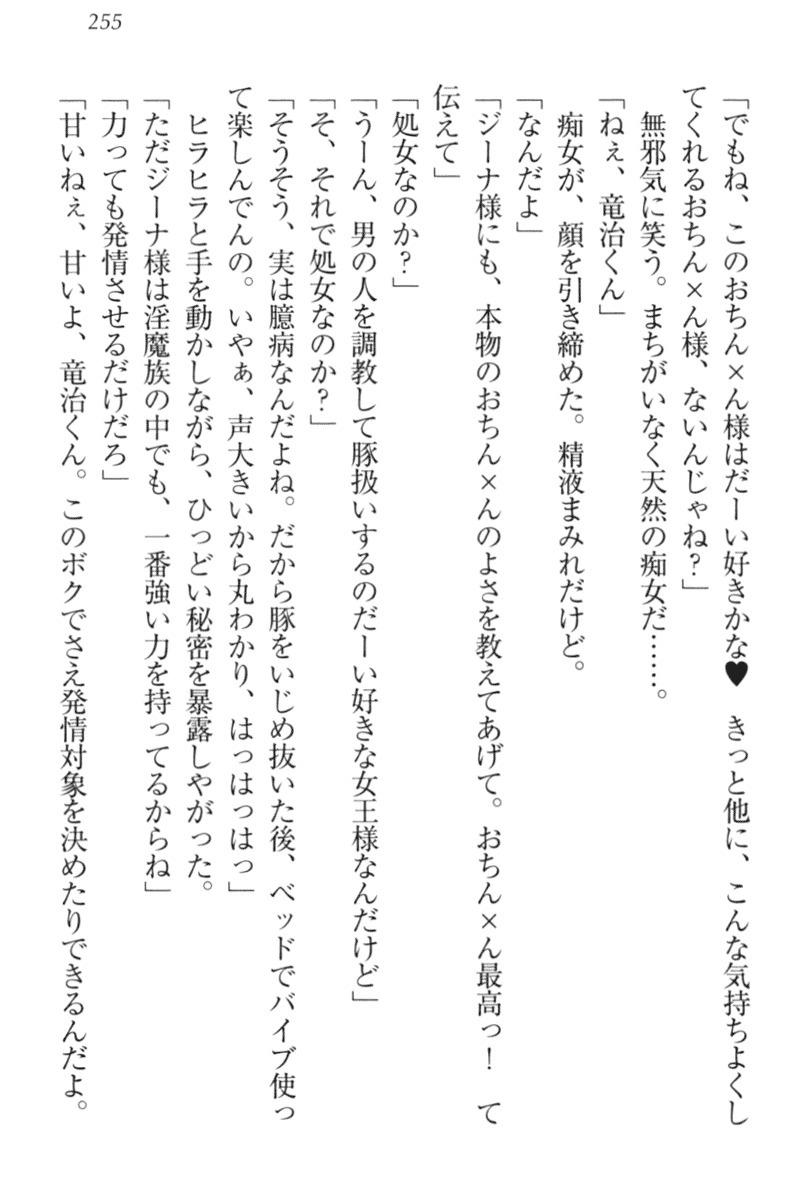 255
「でもね、このおちん×ん様はだーい好きかな♥　きっと他に、こんな気持ちよくし
てくれるおちん×ん様、ないんじゃね？」
　無邪気に笑う。まちがいなく天然の痴女だ……。
「ねぇ、竜治くん」
　痴女が、顔を引き締めた。精液まみれだけど。
「なんだよ」
「ジーナ様にも、本物のおちん×んのよさを教えてあげて。おちん×ん最高っ！　て
伝えて」
「処女なのか？」
「うーん、男の人を調教して豚扱いするのだーい好きな女王様なんだけど」
「そ、それで処女なのか？」
「そうそう、実は臆病なんだよね。だから豚をいじめ抜いた後、ベッドでバイブ使っ
て楽しんでんの。いやぁ、声大きいから丸わかり、はっはっはっ」
　ヒラヒラと手を動かしながら、ひっどい秘密を暴露しやがった。
「ただジーナ様は淫魔族の中でも、一番強い力を持ってるからね」
「力っても発情させるだけだろ」
「甘いねぇ、甘いよ、竜治くん。このボクでさえ発情対象を決めたりできるんだよ。